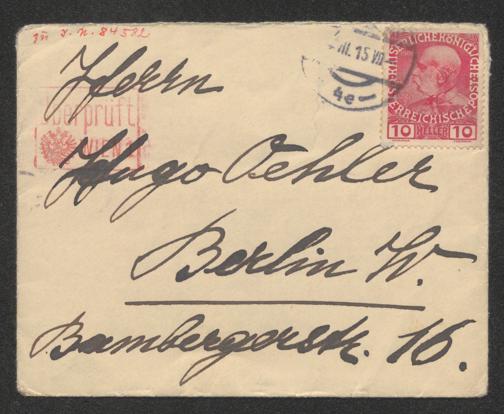 zu I. N. 84582
III. 15 VII
4e
KAISERLICHE KÖNIGLICHE
ÖSTERREICHISCHE
10 HELLER 10
Überprüft
WIEN
Herrn
Hugo Oehler
Berlin W.
Bambergerstr. 16.